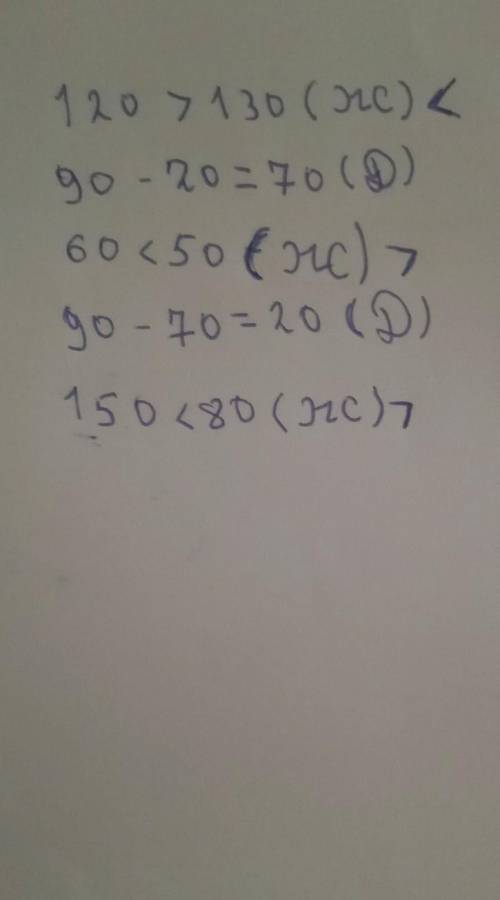 120 > 130 (ж) <
90 - 20 = 70 (Д)
60 < 50 (ж) >
90 - 70 = 20 (Д)
150 < 80 (ж) >